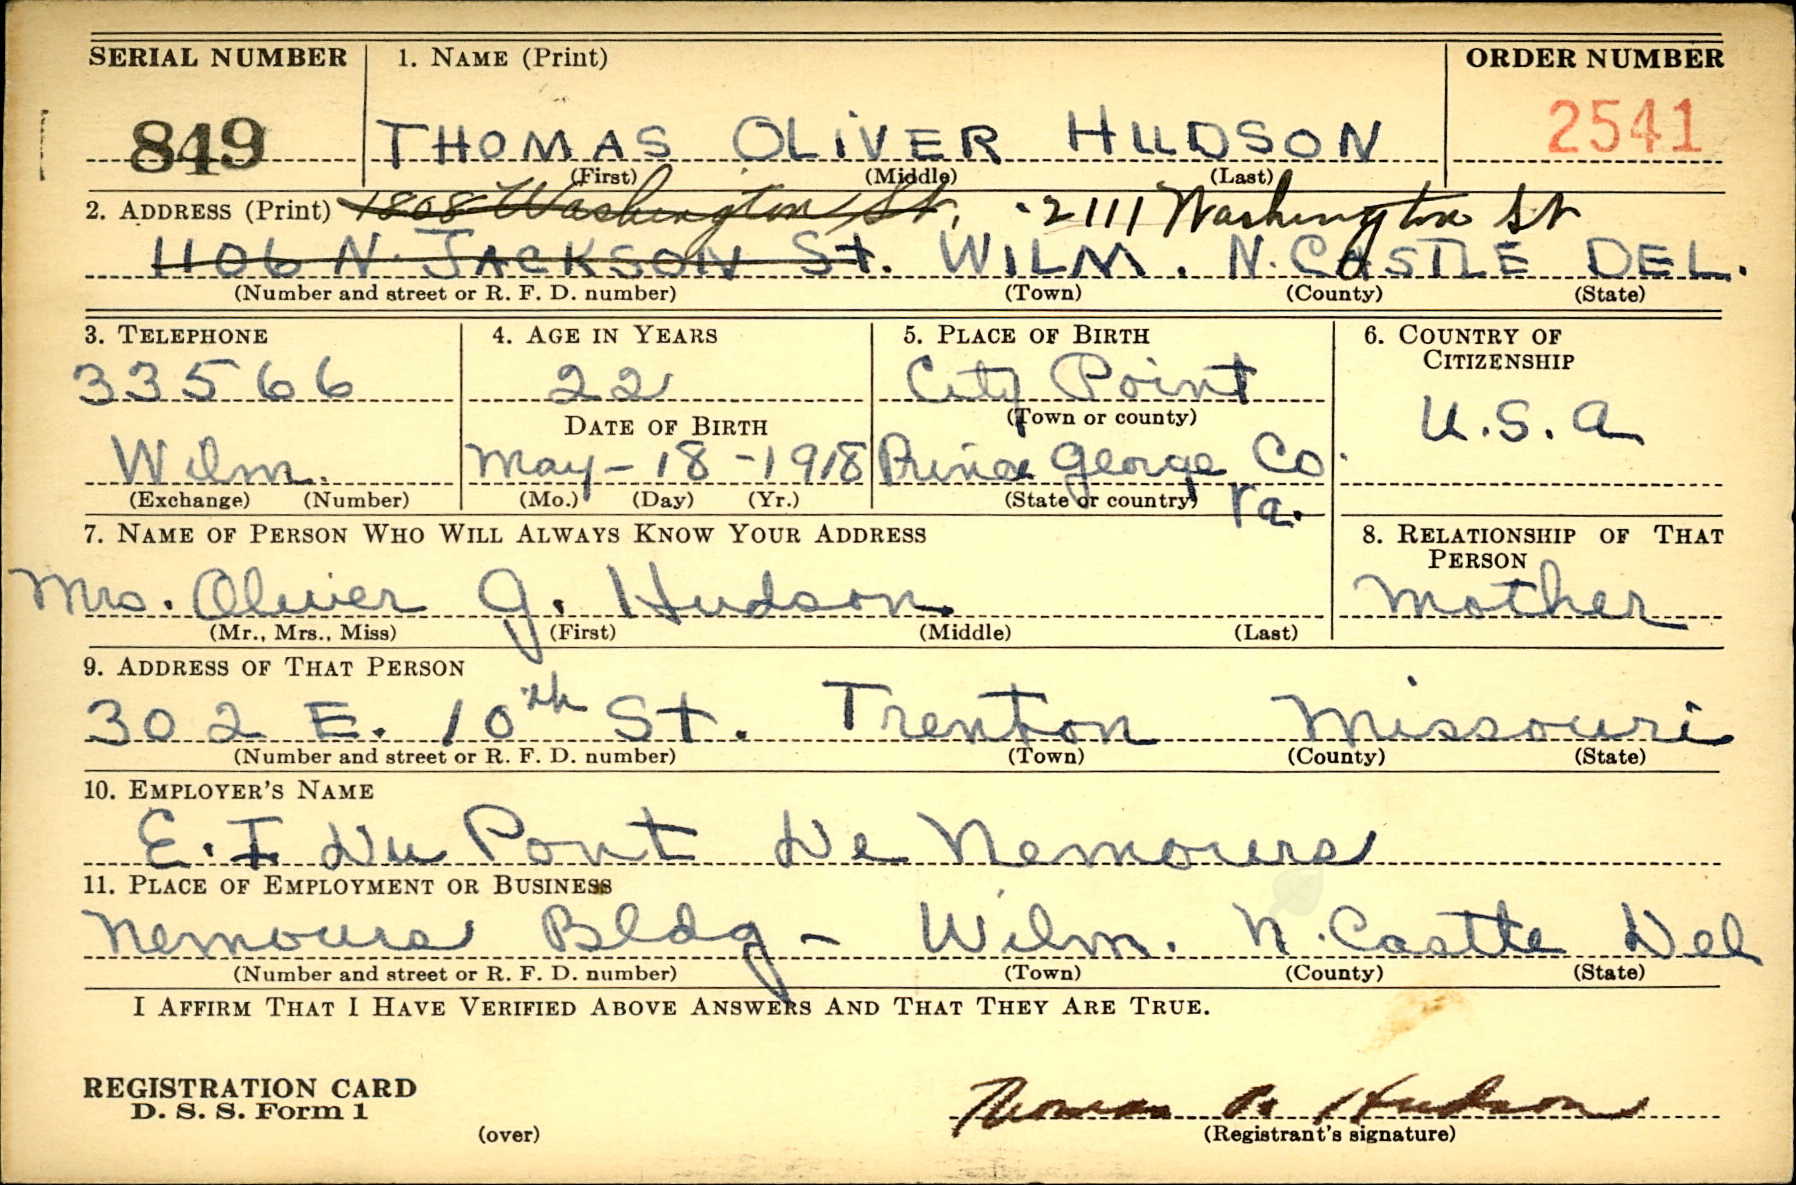 SERIAL NUMBER 1. NAME (Print) ORDER NUMBER
849 THOMAS OLIVER HUDSON 2541
(First) (Middle) (Last)
2. ADDRESS (Print) 1808 Washington St. 2111 Washington St
1106 N. JACKSON St. WILM. N. CASTLE DEL.
(Number and street or R. F. D. number) (Town) (County) (State)
3. TELEPHONE 4. AGE IN YEARS 5. PLACE OF BIRTH 6. COUNTRY OF
CITIZENSHIP
33566 22 City Point
DATE OF BIRTH (Town or county) U.S.A
Wilm. May-18-1918 Prince George Co.
(Exchange) (Number) (Mo.) (Day) (Yr.) (State or country) Va.
7. NAME OF PERSON WHO WILL ALWAYS KNOW YOUR ADDRESS 8. RELATIONSHIP OF THAT
PERSON
Mrs. Oliver J. Hudson Mother
(Mr., Mrs., Miss) (First) (Middle) (Last)
9. ADDRESS OF THAT PERSON
302 E. 10th St. Trenton Missouri
(Number and street or R. F. D. number) (Town) (County) (State)
10. EMPLOYER'S NAME
E. I Du Pont De Nemours
11. PLACE OF EMPLOYMENT OR BUSINESS
Nemours Bldg - Wilm. N. Castle Del
(Number and street or R. F. D. number) (Town) (County) (State)
I AFFIRM THAT I HAVE VERIFIED ABOVE ANSWERS AND THAT THEY ARE TRUE.
REGISTRATION CARD
D. S. S. Form 1 Thomas O. Hudson
(over) (Registrant's signature)